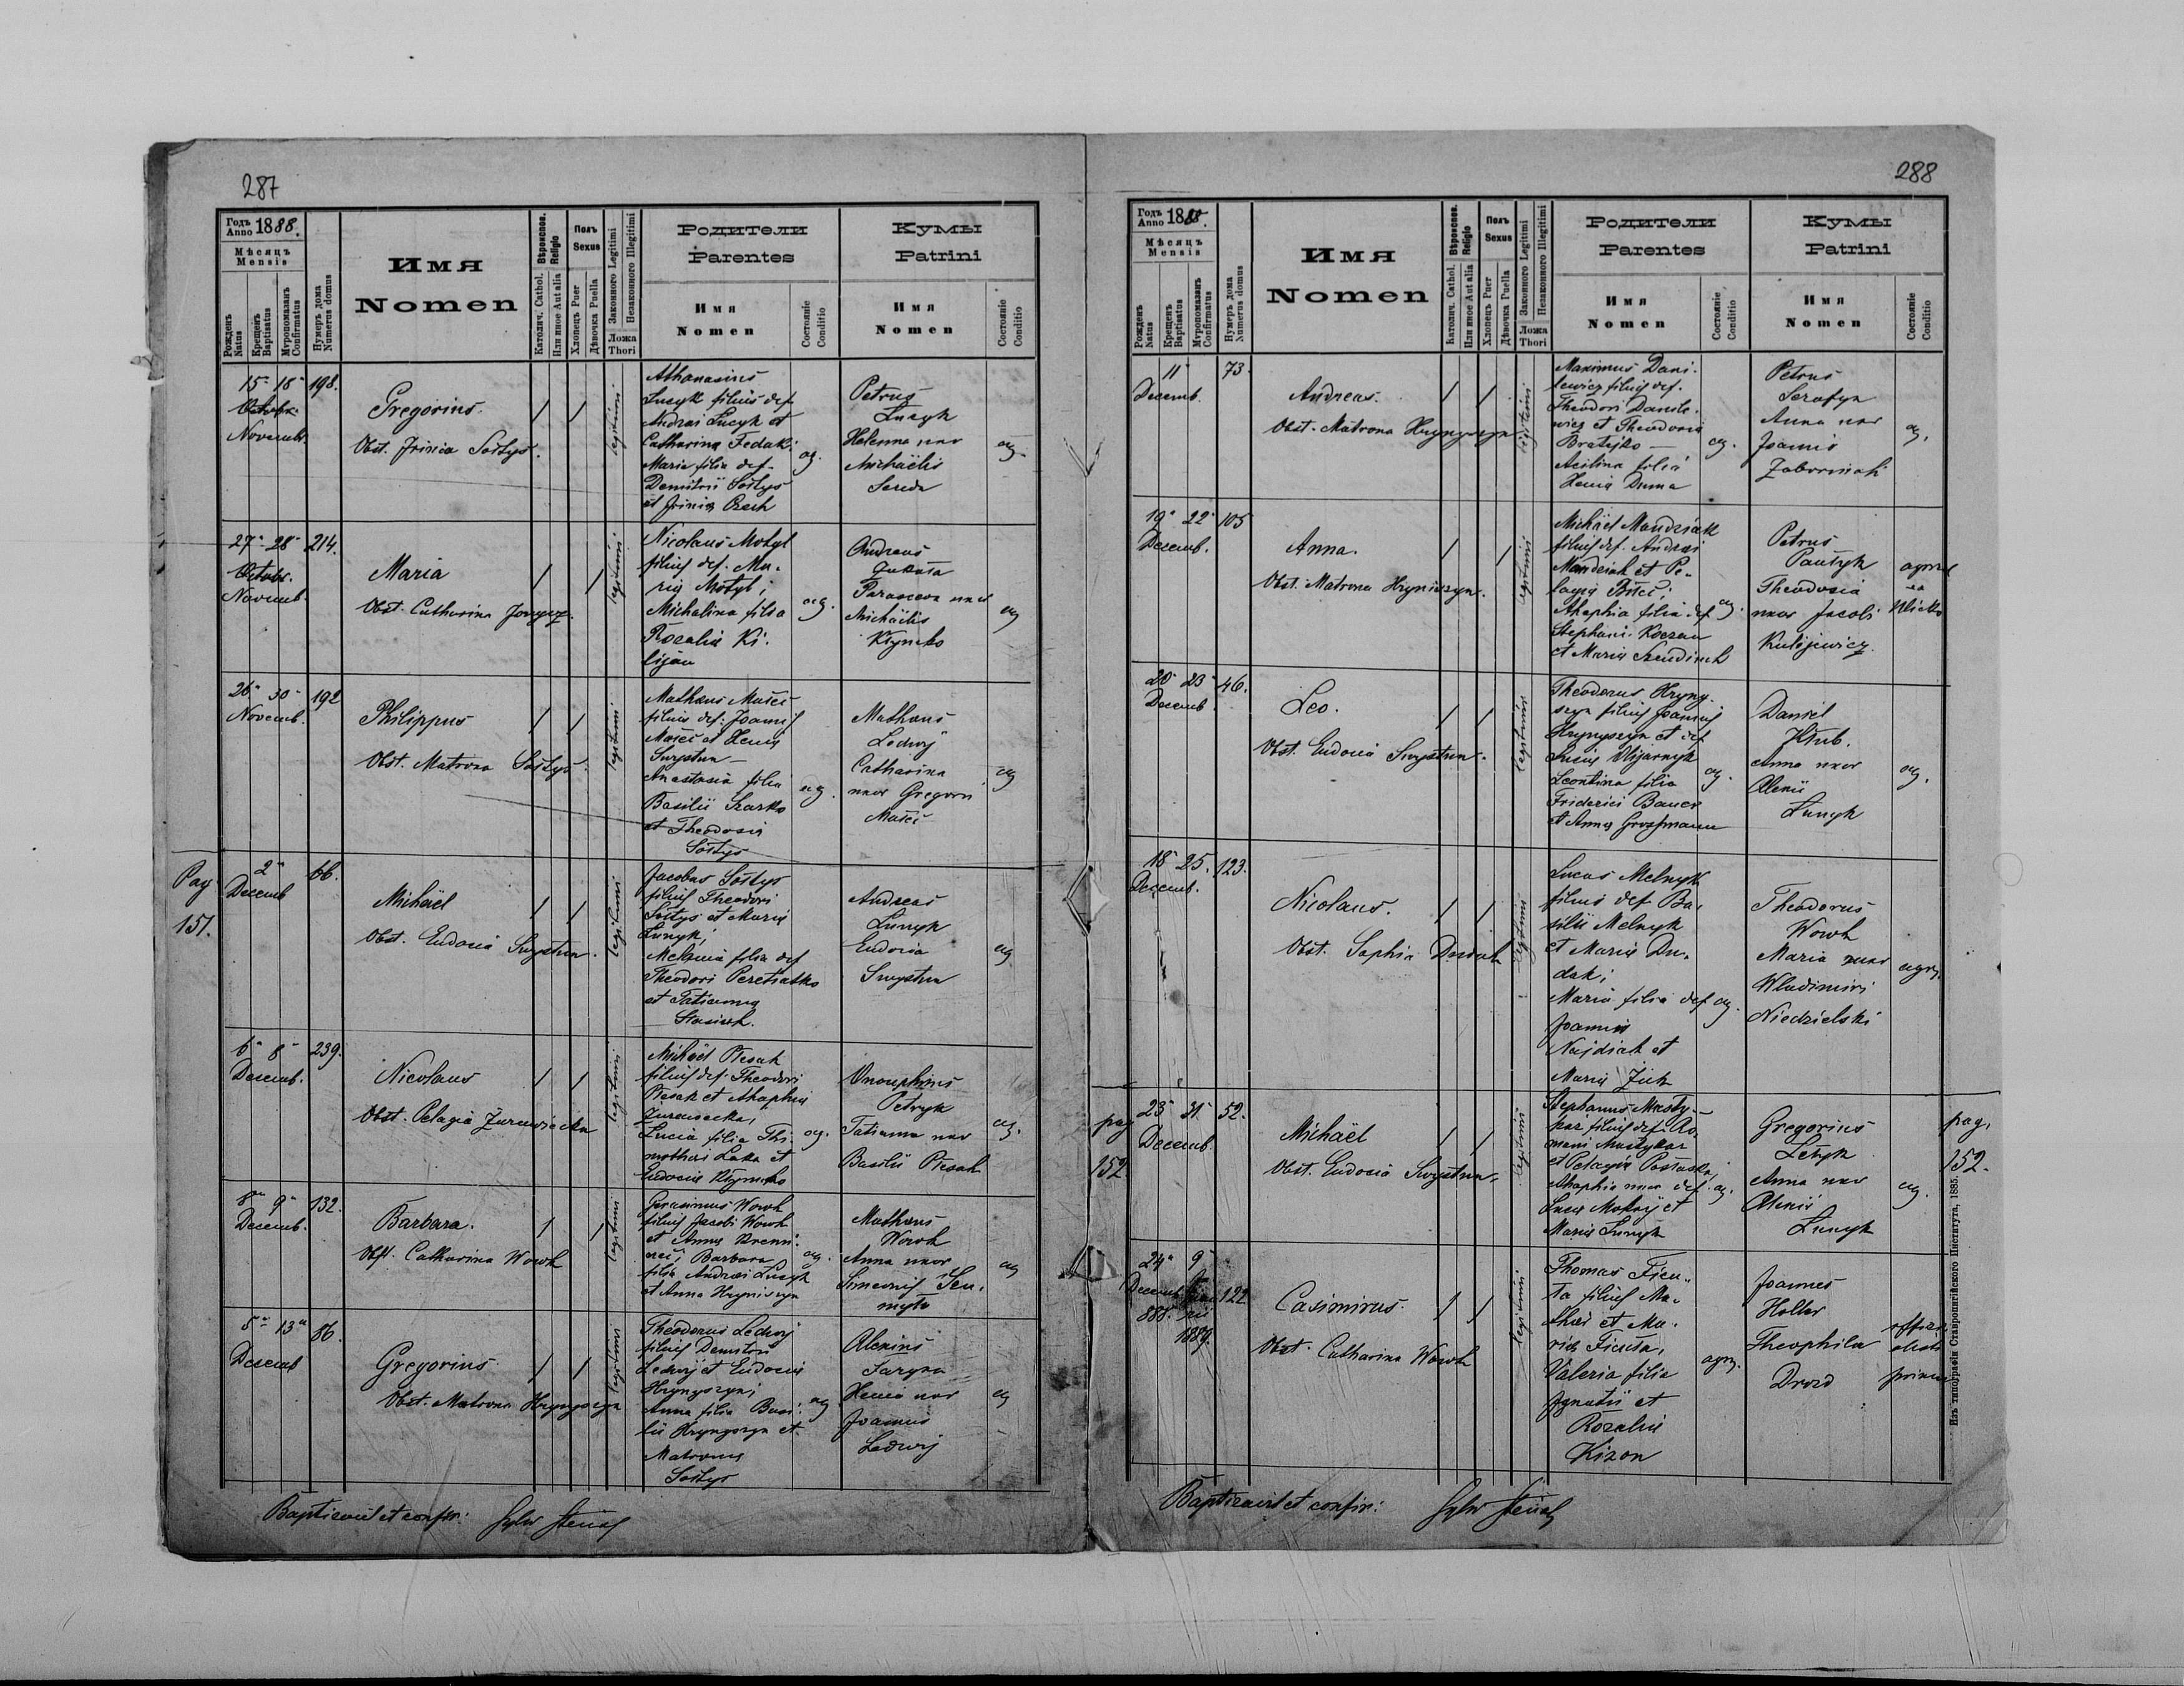 287
Годъ Anno 1888.
Мѣсяцъ
Mensis
Рожденъ Natus
Крещенъ Baptisatus
Муропомазанъ Confirmatus
Нумеръ дома Numerus domus
Имя
Nomen
Вѣроиспов. Religio
Католич. Cathol.
Или иное Aut alia
Полъ Sexus
Хлопецъ Puer
Дѣвочка Puella
Законного Legitimi
Незаконного Illegitimi
Ложа Thori
Родители
Parentes
Имя
Nomen
Состояніе Conditio
Кумы
Patrini
Имя
Nomen
Состояніе Conditio
15 18 198.
Octobr.
Novembr.
Gregorius
Obst. Irinia Sołtys.
legitimi
Athanasius
Lucyk filius def.
Andrei Lucyk et
Catharina Fedak;
Maria filia def.
Demitrii Sołtys
et Irinia
ag.
Petrus
Lucyk
Helenna uxor
Michaëlis
Sereda
ag.
27 28 214.
Octobr.
Novemb.
Maria
Obst. Catharina
legitimi
Nicolaus Motyl
filius def. Ma-
ria Motyl;
Michalina filia
Rozalia Ki-
lijan
ag.
Andreas
Paraseva uxor
Michaëlis
Klymko
ag
26 30 192
Novemb.
Philippus
Obst. Matrona Sołtys.
legitimi
Mathæus
filius def. Joannis
et Xenia
Swystun
Anastasia filia
Basilii Szarko
et Theodosia
Sołtys
ag.
Mathæus
Ledwij
Catharina
uxor Gregorii
ag
Pag
151.
2 66.
Decemb
Michaël
Obst. Eudocia Swystun.
legitimi
Jacobus Sołtys
filius Theodori
Sołtys et Maria
Lunyk;
Melania filia def
Theodori Peretiatko
et Tatianna
Stasiuk.
Andreas
Lunyk
Eudocia
Swystun
ag
6 8 239.
Decemb.
Nicolaus
Obst. Pelagia Żurawiecka
legitimi
Michaël Plesak
filius def. Theodori
Plesak et Ahaphia
Lucia filia Thi-
mothei Laka et
Eudocia Klymko
ag.
Onouphrius
Petryk
Tatianna uxor
Basilii Plesak
ag.
8 9 132.
Decemb.
Barbara.
Obst. Catharina Wowk
legitimi
Gerasimus Wowk
filius Jacobi Wowk
et Anna
Barbara
filia Andrei Lucyk
et Anna Hryniszyn
ag.
Mathæus
Wowk
Anna uxor
Simeonis
ag
5 13 86.
Decemb
Gregorius
Obst. Matrona Hrynyszyn
legitimi
Theodorus Ledwij
filius Demitrii
Ledwij et Eudocia
Hrynyszyn;
Anna filia Basi-
lii Hrynyszyn et
Matrona
Sołtys
ag
Alexius
Xenia uxor
Joannis
Ledwij
ag
Baptisavit et confir:
288
Годъ Anno 1888.
Мѣсяцъ
Mensis
Рожденъ Natus
Крещенъ Baptisatus
Муропомазанъ Confirmatus
Нумеръ дома Numerus domus
Имя
Nomen
Вѣроиспов. Religio
Католич. Cathol.
Или иное Aut alia
Полъ Sexus
Хлопецъ Puer
Дѣвочка Puella
Законного Legitimi
Незаконного Illegitimi
Ложа Thori
Родители
Parentes
Имя
Nomen
Состояніе Conditio
Кумы
Patrini
Имя
Nomen
Состояніе Conditio
11 73.
Decemb.
Andreas.
Obst. Matrona Hrynyszyn
legitimi
Maximus Dani-
lewicz filius def.
Theodori Danile-
wicz et Theodora
Bratejko
Acilina filia
Xenia Duma
ag.
Petrus
Serafyn
Anna uxor
Joannis
ag.
19 22 105
Decemb.
Anna.
Obst. Matrona Hryniszyn.
legitimi
Michaël Mandziak
filius def. Andrei
Mandziak et Pe-
lagia
Ahaphia filia def
Stephani Koczan
et Maria
ag.
Petrus
Theodosia
uxor Jacobi
Kulijewicz
20 23 46.
Decemb.
Leo.
Obst. Eudocia Swystun.
legitimi
Theodorus Hryny-
szyn filius Joannis
Hrynyszyn et def
Lucia Olijarnyk
Leontina filia
Friderici Bauer
et Anna Grossmann
ag.
Daniel
Anna uxor
Alexii
Lunyk
ag.
18 25. 123.
Decemb.
Nicolaus.
Obst. Sophia
legitimi
Lucas Melnyk
filius def Ba-
silii Melnyk
et Maria Du-
dak;
Maria filia def
Joannis
Najdiak et
Maria
ag.
Theodorus
Wowk
Maria uxor
Wladimiri
Niedzielski
agr.
pag
152
23 31 52.
Decemb
Michaël
Obst. Eudocia Swystun.
legitimi
Stephanus Musty-
kar filius def. Ro-
mani Mustykar
et Pelagia
Ahaphia uxor def.
Luca Mokrij et
Maria Lunyk
ag.
Gregorius
Letnyk
Anna uxor
Alexii
Lunyk
ag.
pag.
152.
24 9
Decemb. Janua-
888. rii 122
1889.
Casimirus.
Obst. Catharina Wowk
legitimi
Thomas Ficu-
ta filius Ma-
thæi et Ma-
ria Ficuta,
Valeria filia
Ignatii et
Rozalia
Kizon
agr.
Joannes
Holler
Theophila
Drozd
Baptisavit et confir:
Изъ типографіи Ставропигійского Института, 1885.